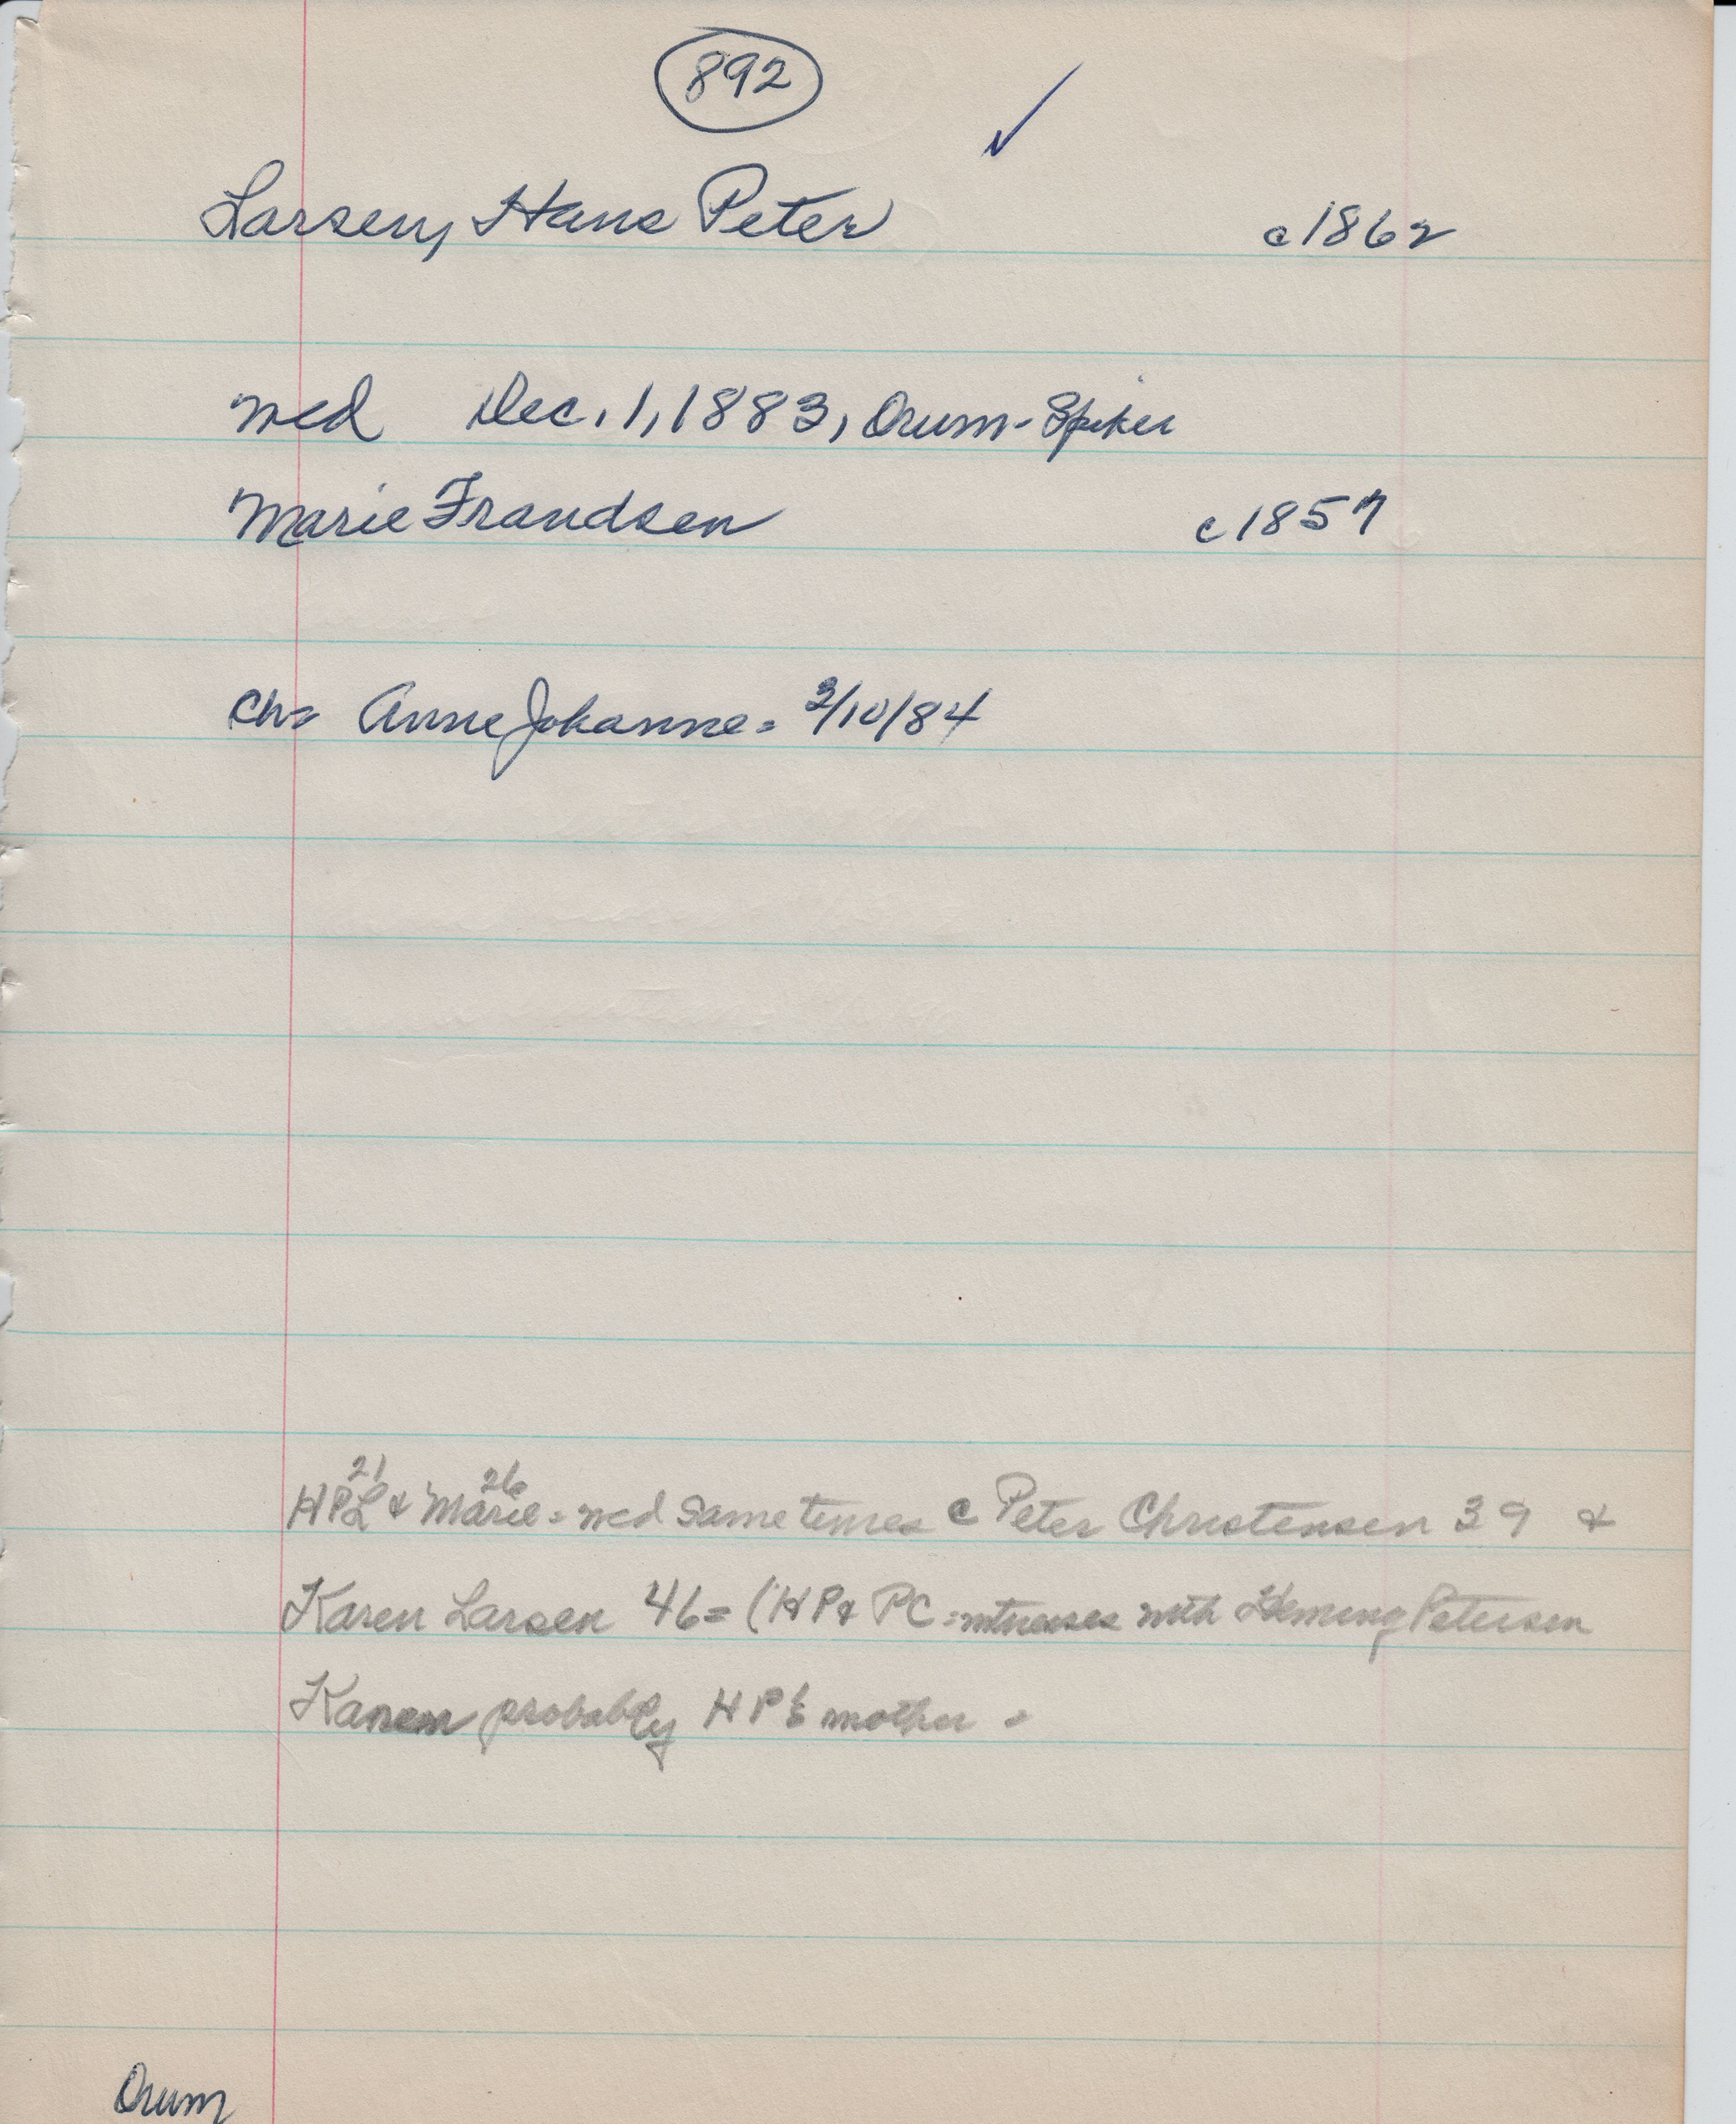 892
Larsen, Hans Peter c1862
med Dec. 1, 1883, Orum-Spiker
Marie Frandsen c1857
ch= Anne Johanne = /10/84
21 26
HPL & Marie = med same times c Peter Christensen 39 &
Karen Larsen 46 = (HP & PC = witnesses with Petersen
Karen probably HP's mother =
Orum